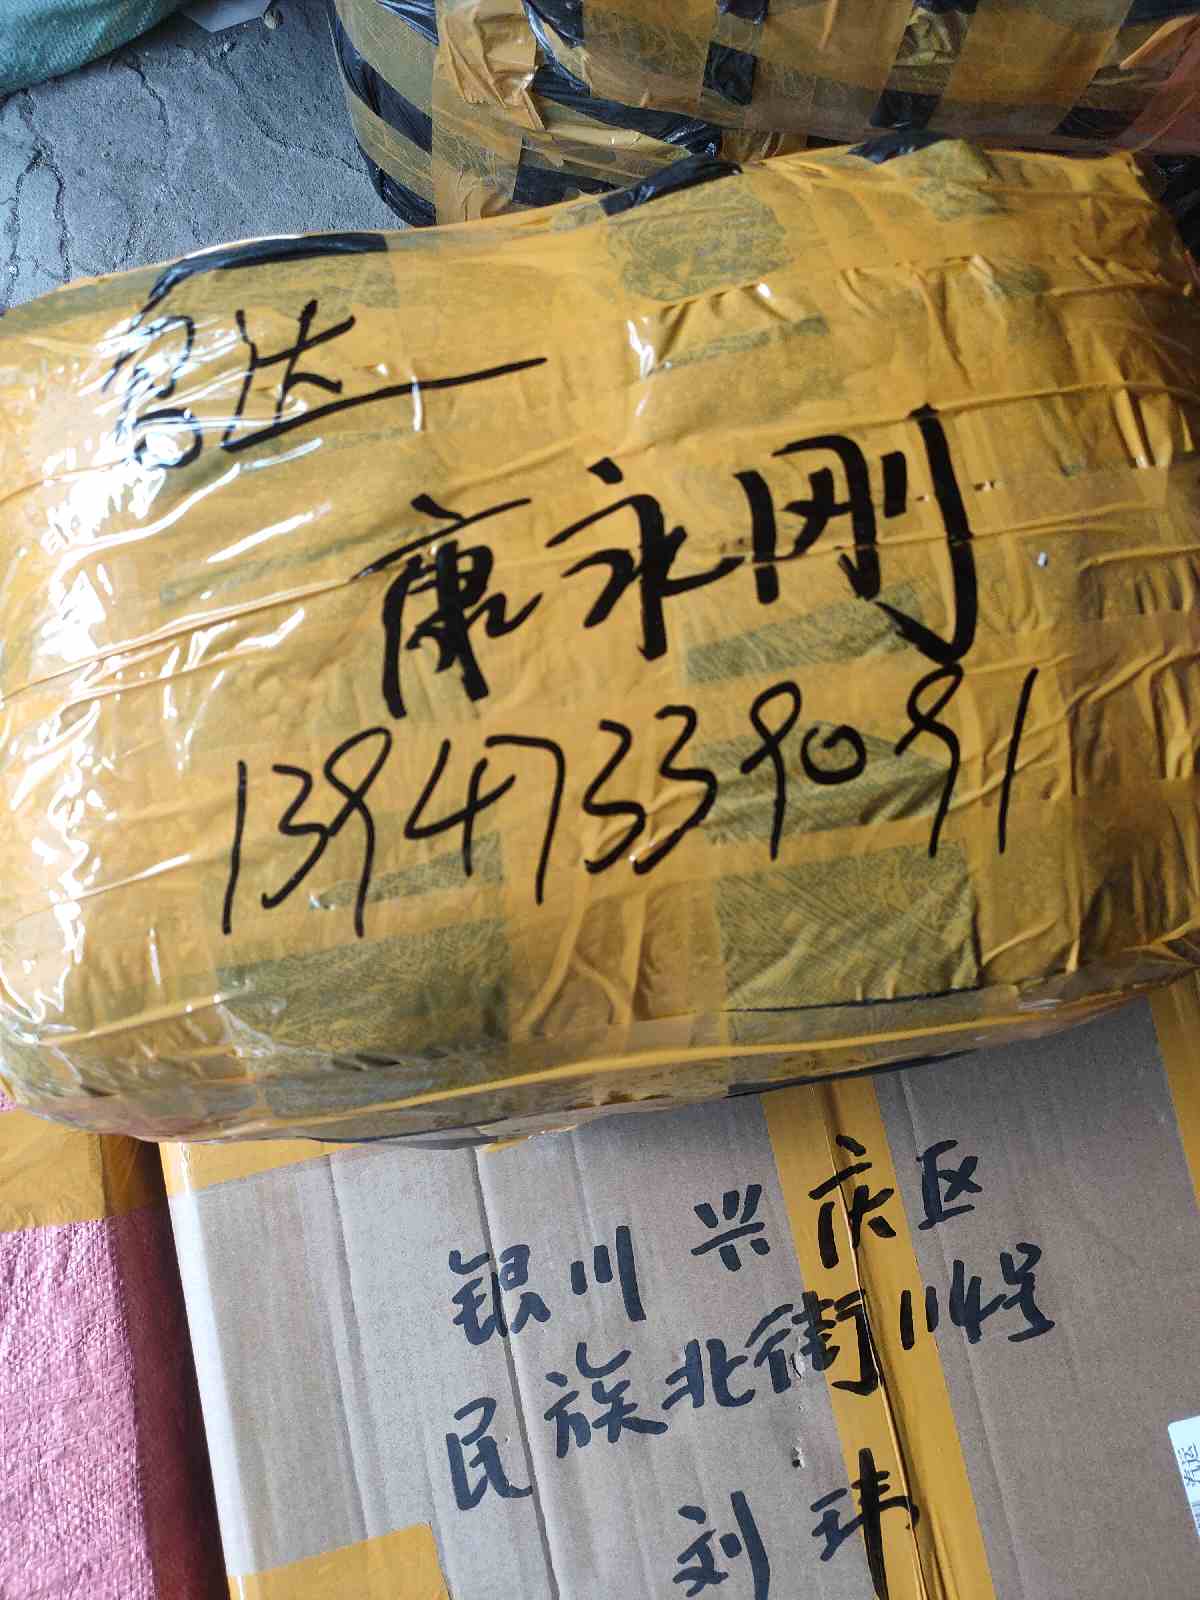 康永刚
13947339091
银川 兴庆区
民族北街114号
刘玮
汽运